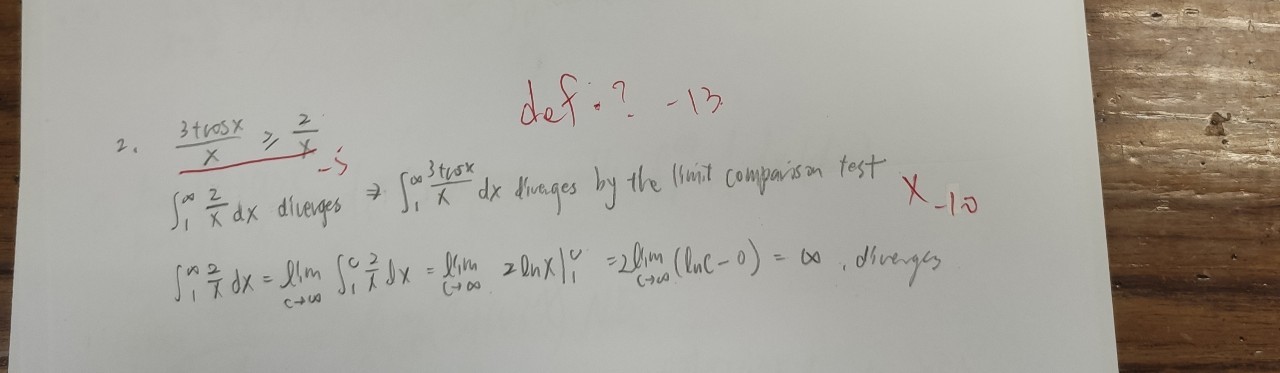 def.? -13
2. (3+cosx)/x ≥ 2/x -5
∫₁^∞ 2/x dx diverges ⇒ ∫₁^∞ (3+cosx)/x dx diverges by the limit comparison test X -10
∫₁^∞ 2/x dx = lim_{c→∞} ∫₁^c 2/x dx = lim_{c→∞} 2lnx|₁^c = 2lim_{c→∞} (lnc-0) = ∞, diverges